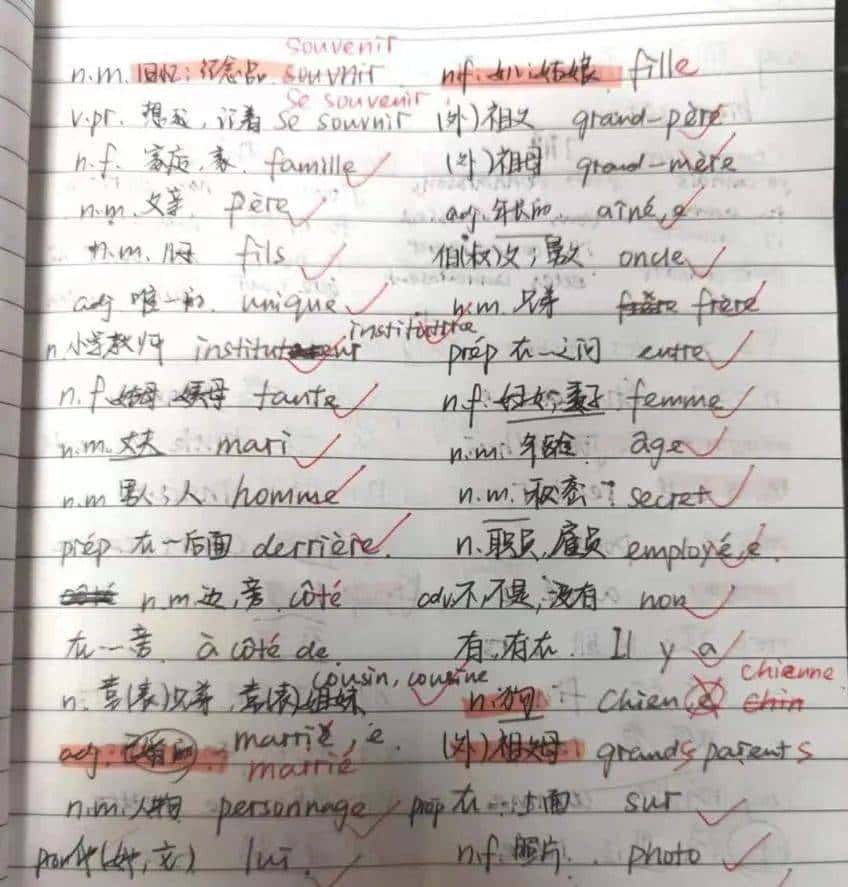 souvenir
n.m. 回忆；纪念品 souvnir n.f. 女儿；姑娘 fille
se souvenir
v.pr. 想起，记着 se souvnir (外)祖父 grand-père
n.f. 家庭，家 famille (外)祖母 grand-mère
n.m. 父亲 père adj. 年长的 aîné,e
n.m. 儿子 fils 伯(叔)父；舅父 oncle
adj 唯一的 unique n.m. 兄弟 frère
institutrice
n 小学教师 instituteur prép 在…之间 entre
n.f. 姑母，姨母 tante n.f. 妇女；妻子 femme
n.m. 丈夫 mari n.m. 年龄 âge
n.m 男人；人 homme n.m. 秘密 secret
prép 在…后面 derrière n. 职员，雇员 employé,e
côté n.m. 边，旁 côté adv. 不，不是，没有 non
在…旁 à côté de 有，存在 Il y a
cousin, cousine chienne
n. 堂(表)兄弟，堂(表)姐妹 n. 狗 chien,e chin
adj. 已婚的 marrié, e. (外)祖父母 grands parents
marrié
n.m. 人物 personnage prép 在…上面 sur
pron 他(她，它) lui n.f. 照片 photo